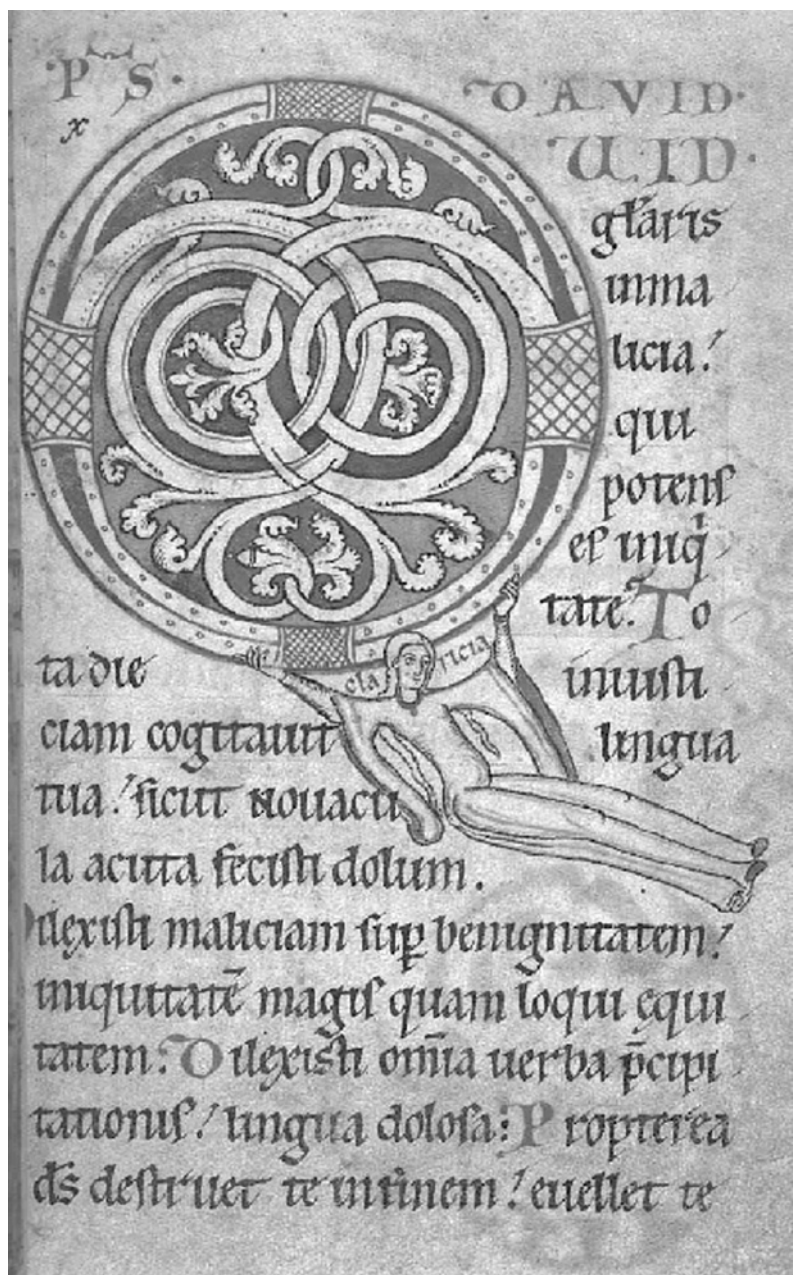 PS. DAVID.
x
QUID
głaris
inma
licia!
qui
potens
es iniq
tate. To
cla ricia
ta die iniusti
ciam cogitauit lingua
tua! sicut nouacu
la acuta fecisti dolum.
Dilexisti maliciam sup benignitatem!
iniquitatē magis quam loqui ęqui
tatem: Dilexisti om̄ia uerba p̄cipi
tationis! lingua dolosa: Propterea
ds̄ destruet te infinem! euellet te